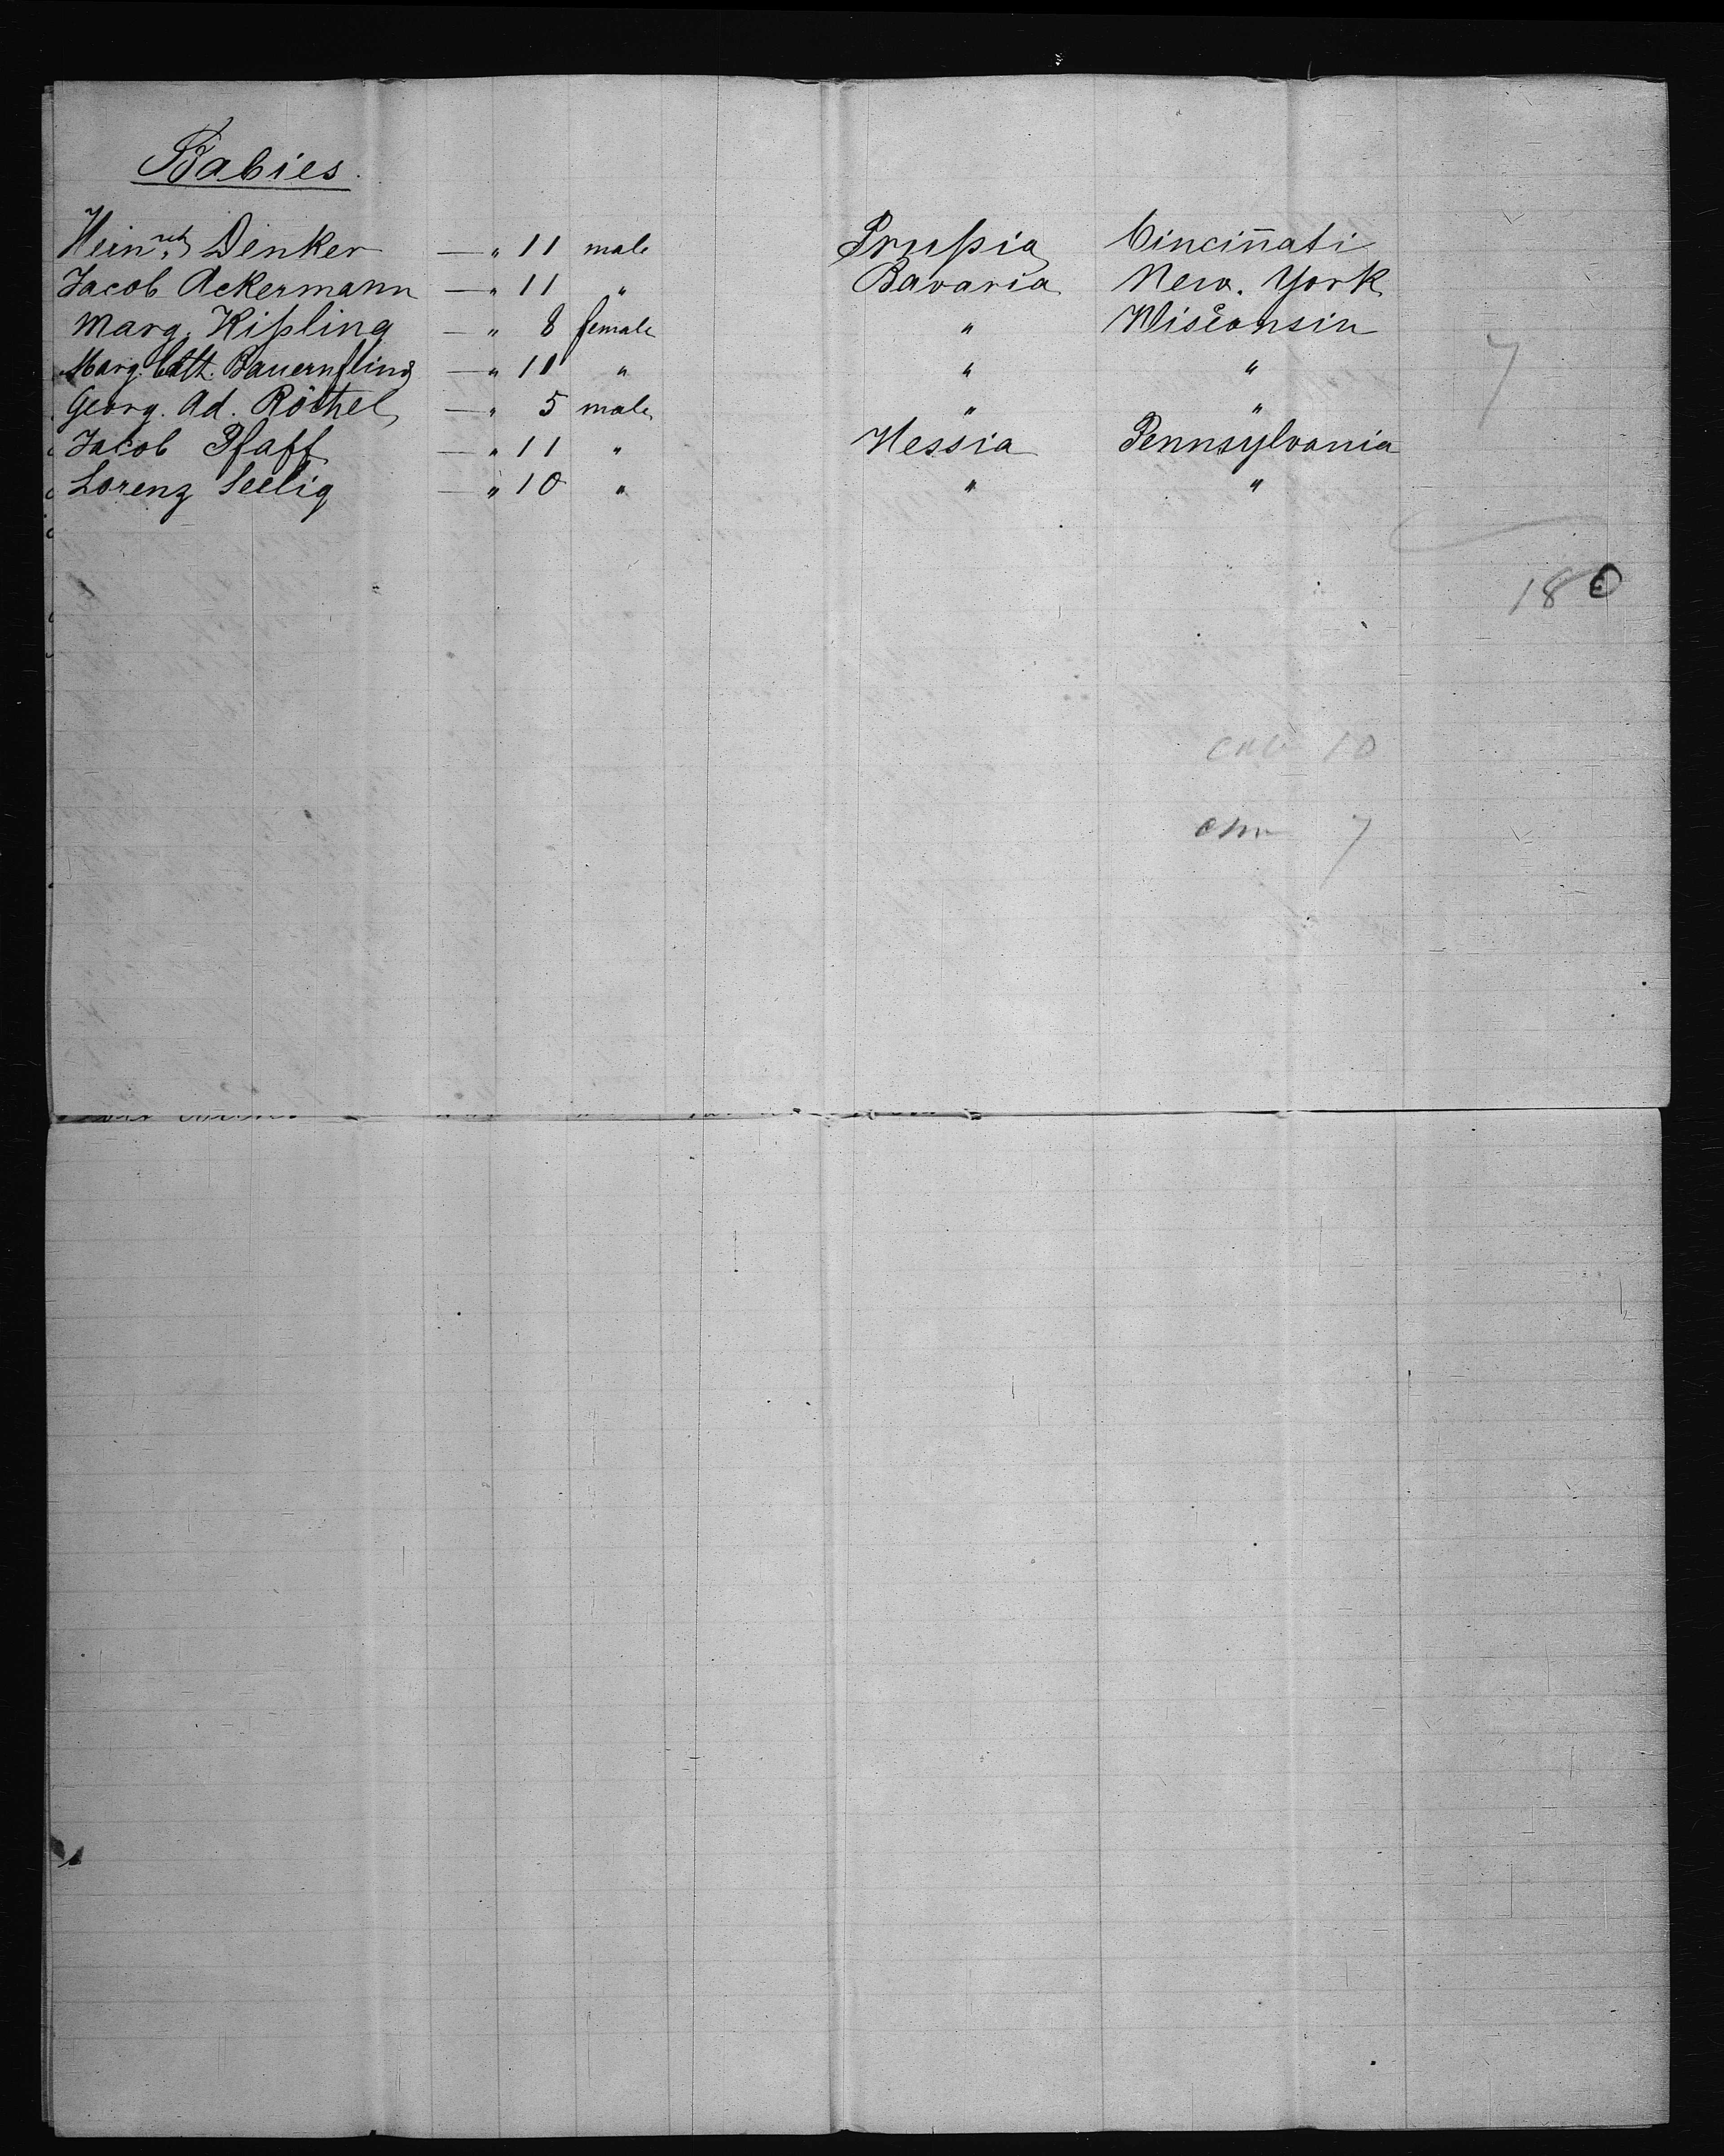 Babies.
Hein^rch Denker — " 11 male Prußia Cincin̄ati
Jacob Ackermann — " 11 " Bavaria New. York
Marg. Kißling — " 8 female " Wisconsin
Marg. Cath. Bauernflind — " 11 " " "
Georg. Ad. Röthel — " 5 male " "
Jacob Pfaff — " 11 " Hessia Pennsylvania
Lorenz Seelig — " 10 " " "
7
180
10
7